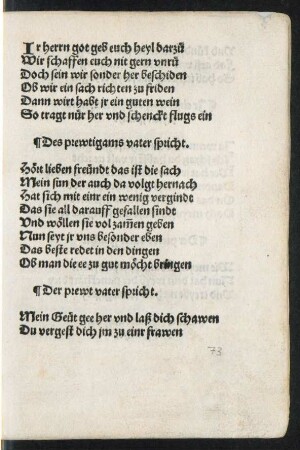 Ir herrn got geb euch heyl darzů
Wir schaffen euch nit gern vnrů
Doch sein wir sonder her beschiden
Ob wir ein sach richten zu friden
Dann wirt habt jr ein guten wein
So tragt nůr her vnd schenckt flugs ein
¶ Des prewtigams vater spricht.
Hört lieben freündt das ist die sach
Mein sun der auch da volgt hernach
Hat sich mit einr ein wenig vergindt
Das sie all darauff gefallen sindt
Vnd wöllen sie vol zamen geben
Nun seyt jr vns besonder eben
Das beste redet in den dingen
Ob man die ee zu gut möcht bringen
¶ Der prewt vater spricht.
Mein Geüt gee her vnd laß dich schawen
Du vergest dich jm zu einr frawen
73